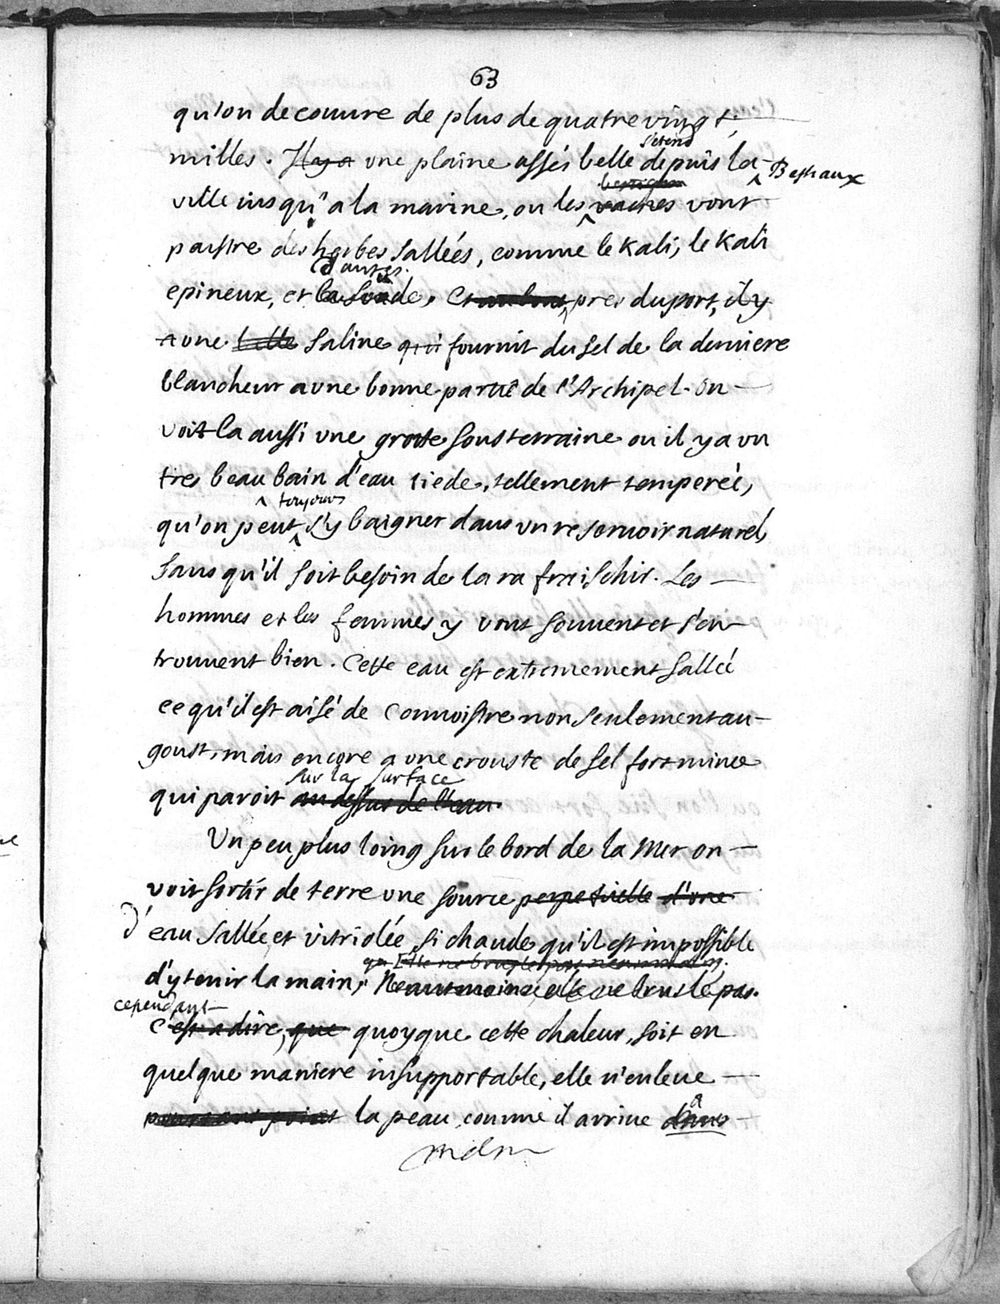 63
qu'on decouure de plus de quatre vingt
milles. Il y a vne plaine assés belle s'etend depuis la
ville iusqu'a la marine, ou les bestiaux vaches Bestiaux vont
paistre des herbes sallées, comme le Kali, le Kali
epineux, et d'autres. la soude. Et pres du port, il y
a vne belle saline qui fournit du sel de la derniere
blancheur a vne bonne partie de l'Archipel. On
voit la aussi vne grotte sousterraine ou il y a vn
tres beau bain d'eau tiede, tellement temperée,
qu'on peut toujours s'y baigner dans vn reseruoir naturel
sans qu'il soit besoin de la rafraischir. Les
hommes et les femmes y vont souuent et s'en
trouuent bien. Cette eau est extremement sallée
ce qu'il est aisé de connoistre non seulement au
goust, mais encore a vne crouste de sel fort mince
qui paroit sur la surface au dessus de l'eau.
Un peu plus loing sur le bord de la Mer on
voit sortir de terre vne source perpetuelle d'vne
d'eau sallée et vitriolée si chaude qu'il est impossible
d'y tenir la main, Elle ne brusle pas neanmoins. Neantmoins elle ne brusle pas.
cependant
C'est a dire, que quoyque cette chaleur, soit en
quelque maniere insupportable, elle n'enleue
pourtant point la peau, comme il arriue a dans